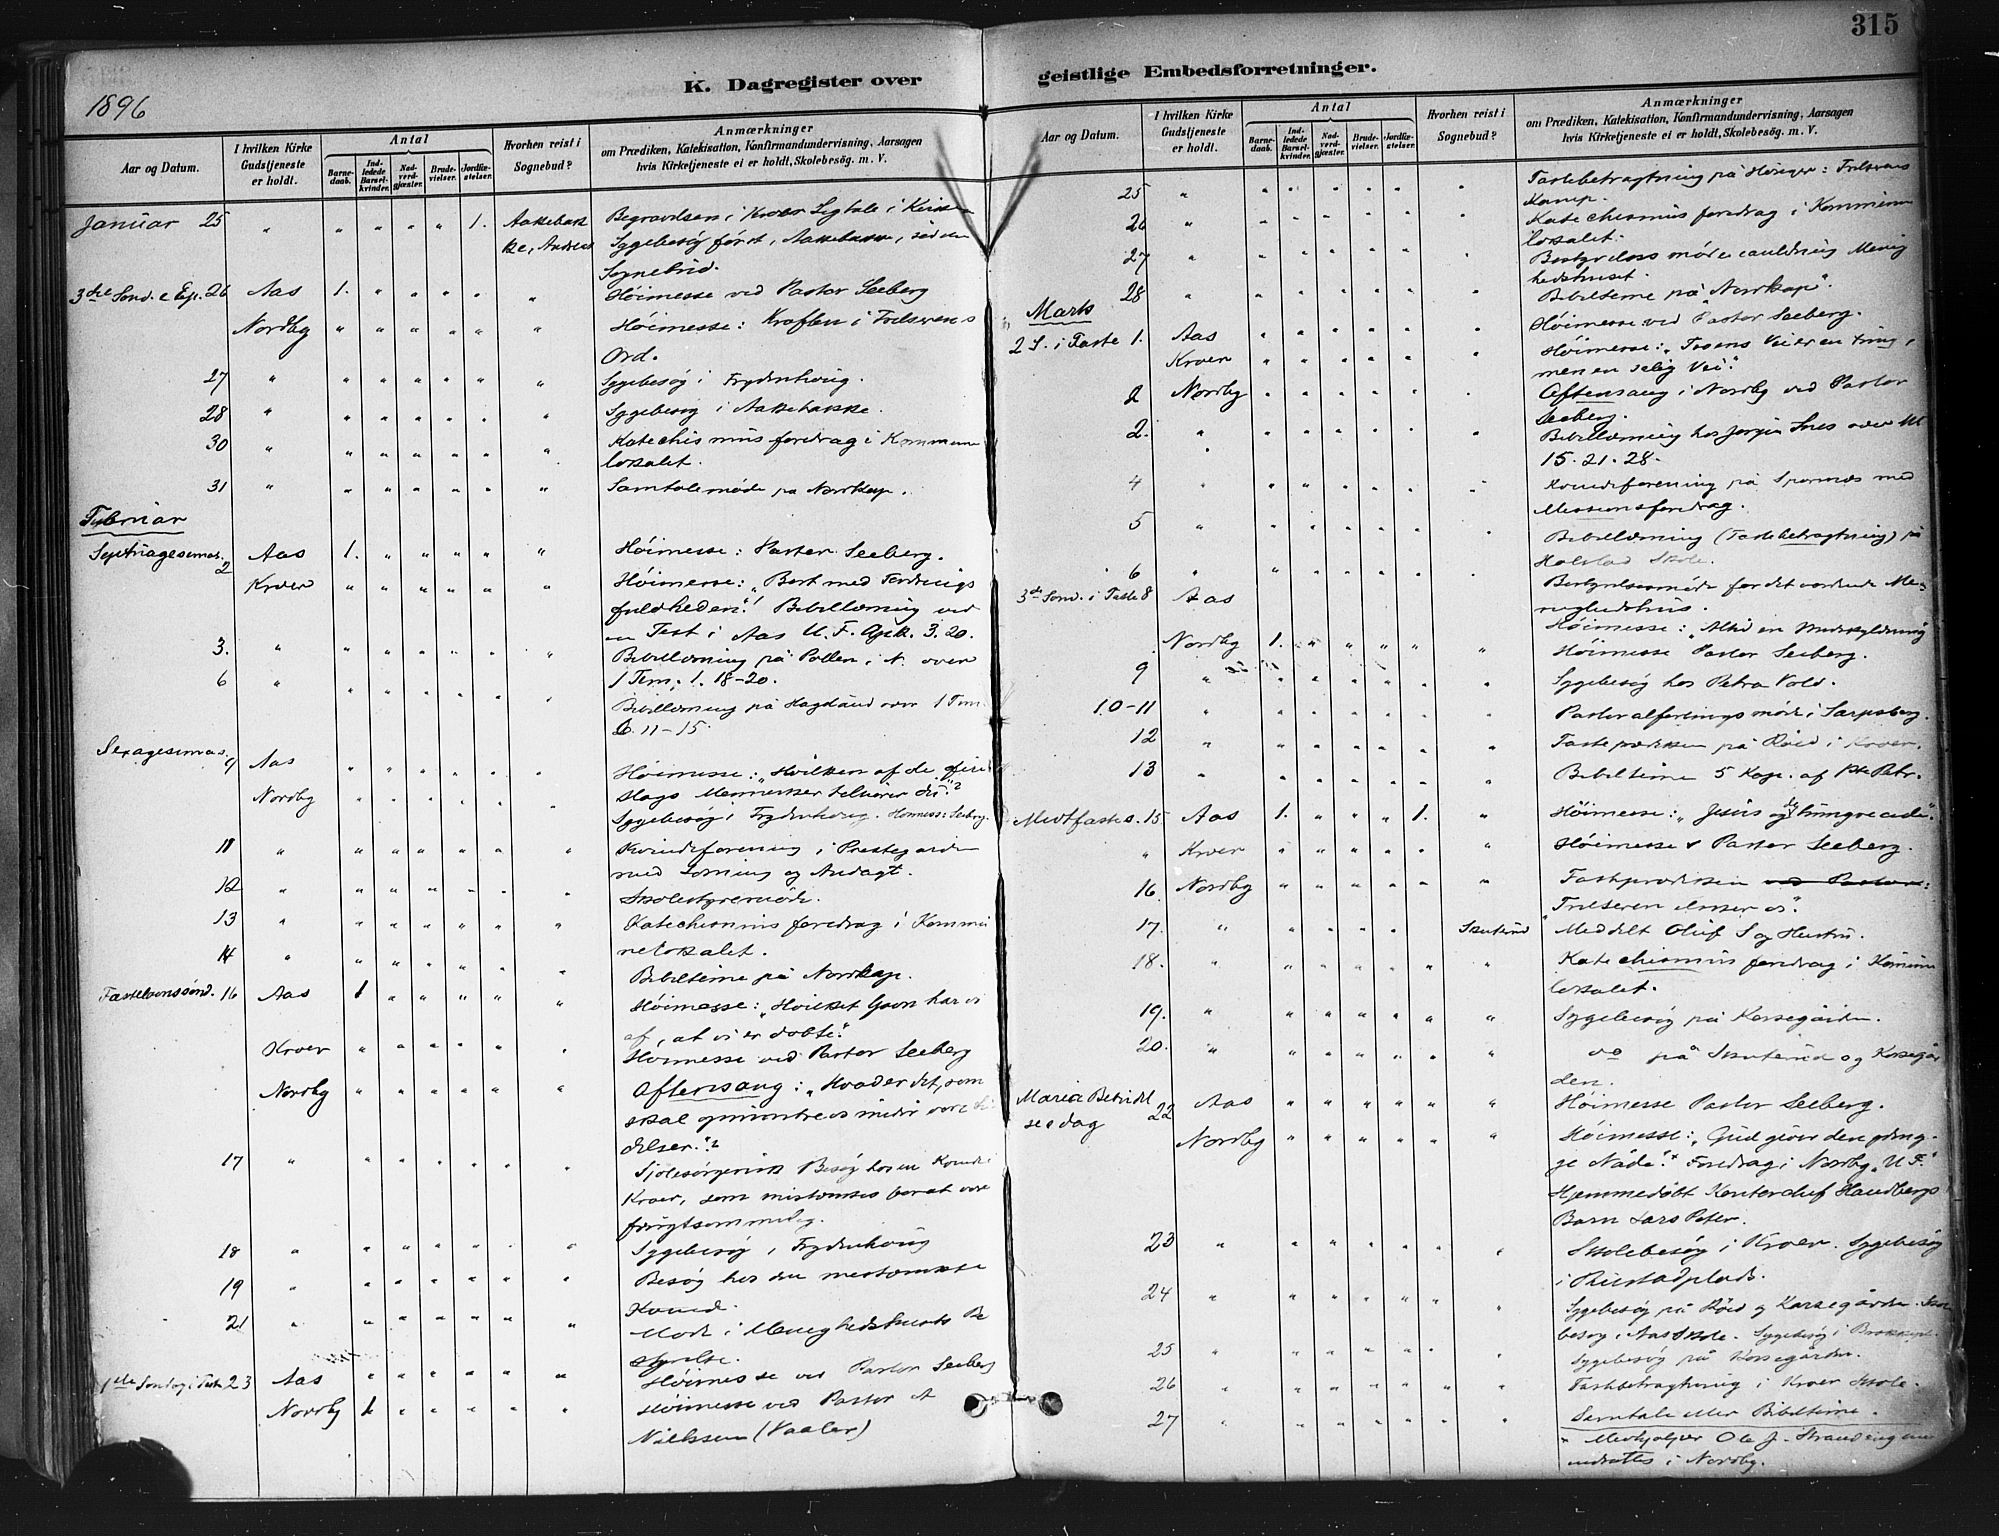 315
K. Dagregister over geistlige Embedsforretninger.
1896
Aar og Datum.
I hvilken Kirke Gudstjeneste er holdt.
Antal
Barnedaab.
Indledede Barselkvinder.
Nadverdgjæster.
Brudevielser.
Jordfæstelser.
Hvorhen reist i Sognebud?
Anmærkninger
om Prædiken, Katekisation, Konfirmandundervisning, Aarsagen
hvis Kirketjeneste ei er holdt, Skolebesøg. m. V.
Januar 25 " " " " " 1. Aakebak Begravelse i Kroer Ligtale i Kirken
ke, Andreas Sygebesøg først, Aakebakke, siden
Sognebud.
3die Sønd. e Ep. 26 Aas 1. " " " " " Høimesse ved Pastor Seeberg
Nordby " " " " " " Høimesse: Kraften i Frelserens
Ord.
27 " " " " " " " Sygebesøg i Frydenhaug.
28 " " " " " " " Sygebesøg i Aakebakke.
30 " " " " " " " Katechismusforedrag i Kommune
lokalet.
31 " " " " " " " Samtalemøde på Nordkap.
Februar
Septuagesimas. 2 Aas 1. " " " " " Høimesse: Pastor Seeberg.
Kroer " " " " " " Høimesse: "Bort med
Bibellæsning ved
en Fest i Aas U. F. Apk. 3. 20.
3. " " " " " " " Bibellæsning på Pollen i N. over
1 Tim. 1. 18-20.
6 " " " " " " " Bibellæsning på Hogstad over 1 Tim
6. 11-15.
Sexagesimas. 9 Aas " " " " " " Høimesse: "Hvilken af de fire
Nordby " " " " " " Slags Mennesker tilhører du?"
Sygebesøg i Frydenhaug. Høimesse: Seeberg.
11 " " " " " " " Kvindeforening i Prestegården
med Læsning og Andagt.
12 " " " " " " " Skolestyremøde.
13 " " " " " " " Katechismusforedrag i Kommu
nelokalet.
14 " " " " " " " Bibeltime på Nordkap.
Fastelavnssønd. 16 Aas 1 " " " " " Høimesse: "Hvilket Gavn har vi
af, at vi er døbte."
Kroer " " " " " " Høimesse ved Pastor Seeberg
Nordby " " " " " " Aftensang: "Hvad er det, som
skal opmuntre os under vore Li
delser."?
17 " " " " " " " Sjælesørgerisk Besøg hos en Kvinde i
Kroer, som mistænktes for at være
frugtsommelig.
18 " " " " " " " Sygebesøg i Frydenhaug
19 " " " " " " " Besøg hos den mistænkte
Kvinde.
21 " " " " " " " Møde i Menighedshusets Be
styrelse.
1ste Søndag i Faste 23 Aas " " " " " " Høimesse ved Pastor Seeberg
Nordby 1 " " " " " Høimesse ved Pastor
Nilssen (Vaaler)
Aar og Datum.
I hvilken Kirke Gudstjeneste er holdt.
Antal
Barnedaab.
Indledede Barselkvinder.
Nadverdgjæster.
Brudevielser.
Jordfæstelser.
Hvorhen reist i Sognebud?
Anmærkninger
om Prædiken, Katekisation, Konfirmandundervisning, Aarsagen
hvis Kirketjeneste ei er holdt, Skolebesøg. m. V.
25 " " " " " " " Fastebetragtning på : Frelserens
Kamp.
26 " " " " " " " Katechismusforedrag i Kommune
lokalet.
27 " " " " " " " Bestyrelsesmøde Menig
hedshuset.
28 " " " " " " " Bibeltime på "Nordkap".
Marts
2 S. i Faste 1. Aas " " " " " " Høimesse ved Pastor Seeberg.
Kroer " " " " " " Høimesse: "Troens Vei er en trang,
men en salig Vei."
2 Nordby " " " " " " Aftensang i Nordby ved Pastor
Seeberg.
2. " " " " " " " Bibellæsning hos over Mt
15. 21-28.
4 " " " " " " " Kvindeforening på med
Missionsforedrag.
5 " " " " " " " Bibellæsning (Fastebetragtning) på
Holstad Skole.
6 " " " " " " " Bestyrelsesmøde for det vordende Me
nighedshus.
3die Sønd. i Faste 8 Aas Høimesse: "Altid en Undskyldning
Nordby 1. " " " " " Høimesse Pastor Seeberg.
9 " " " " " " " Sygebesøg hos Petra Vold.
10-11 " " " " " " " Pastoralforeningsmøde i Sarpsborg.
12 " " " " " " " Fasteprædiken på Røed i Kroer.
13 " " " " " " " Bibeltime 5 Kap. af 1ste Petr.
Midtfastes. 15 Aas 1. " " " 1. " Høimesse: "Jesus og de hungrende."
" Kroer " " " " " " Høimesse v Pastor Seeberg.
16 Nordby " " " " " " Fasteprædiken ved Pastor:
"Frelseren elsker os".
17. " " " " " Skuterud Meddelt Oluf S og Hustru.
18. " " " " " " " Katechismusforedrag i Kommune
lokalet.
19. " " " " " " " Sygebesøg på Korsegården.
20. " " " " " " " do på Skuterud og Korsegår
den.
Maria Bebudel
sesdag 22 Aas " " " " " " Høimesse Pastor Seeberg.
Nordby " " " " " " Høimesse: "Gud giver den ydmy-
ge Nåde." Foredrag i Nordby "U. F."
Hjemmedøbt Haudbergs
Barn Lars Peter.
23 " " " " " " " Skolebesøg i Kroer. Sygebesøg
i Rustadplads.
24 " " " " " " " Sygebesøg på Røed og Korsegården. Skole
besøg i Aas Skole. Sygebesøg i
25 " " " " " " " Sygebesøg på Korsegården.
26 " " " " " " " Fastebetragtning i Kroer Skole.
27 " " " " " " " Samtale eller Bibeltime.
" Medhjælper Ole J. Strand
indsattes i Nordby.